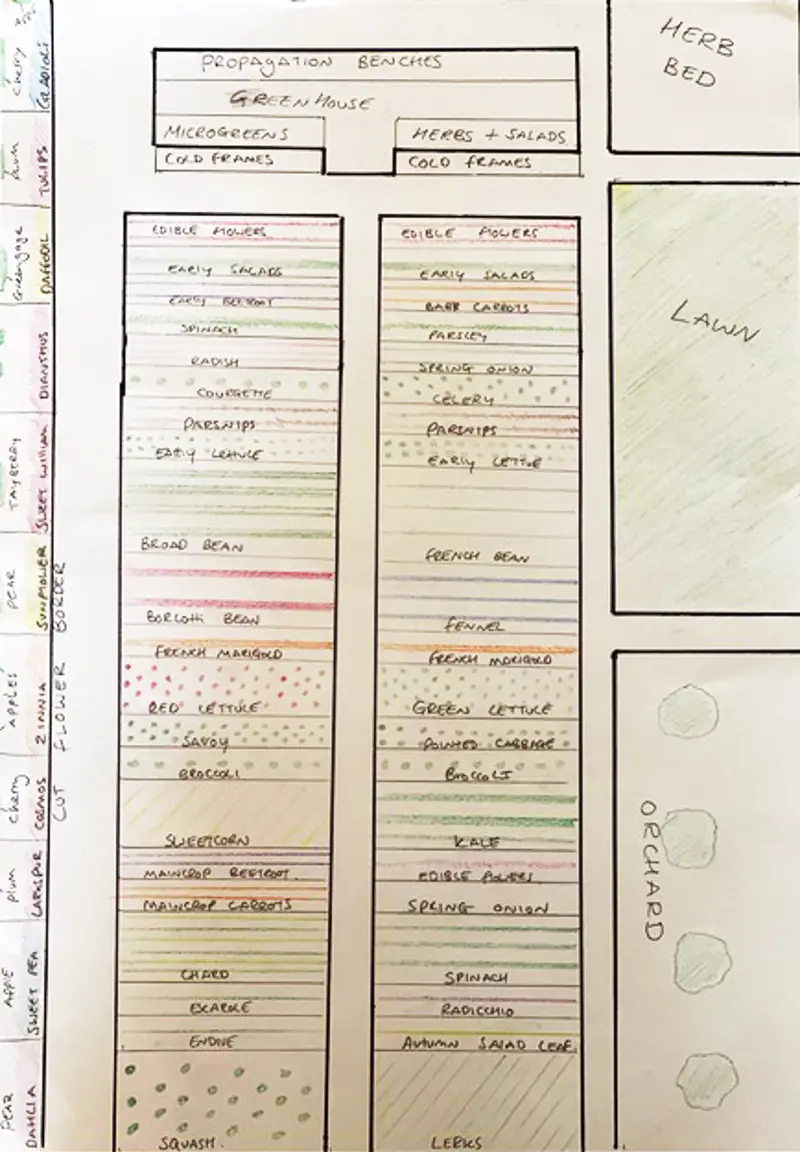 PROPAGATION BENCHES
GREENHOUSE
MICROGREENS
HERBS + SALADS
COLD FRAMES
COLD FRAMES
HERB
BED
LAWN
ORCHARD
EDIBLE FLOWERS
EARLY SALADS
EARLY BEETROOT
SPINACH
RADISH
COURGETTE
PARSNIPS
EARLY LETTUCE
BROAD BEAN
BORLOTTI BEAN
FRENCH MARIGOLD
RED LETTUCE
SAVOY
BROCCOLI
SWEETCORN
MAINCROP BEETROOT
MAINCROP CARROTS
CHARD
ESCAROLE
ENDIVE
SQUASH
EDIBLE FLOWERS
EARLY SALADS
BABY CARROTS
PARSLEY
SPRING ONION
CELERY
PARSNIPS
EARLY LETTUE
FRENCH BEAN
FENNEL
FRENCH MARIGOLD
GREEN LETTUCE
POINTED CABBAGE
BROCCOLI
KALE
EDIBLE FLOWERS
SPRING ONION
SPINACH
RADICCHIO
AUTUMN SALAD LEAF
LEEKS
CUT FLOWER BORDER
cherry
plum
Greengage
TAYBERRY
PEAR
APPLES
cherry
plum
APPLE
PEAR
GLADIOLI
TULIPS
DAFFODIL
DIANTHUS
SWEET WILLIAM
SUNFLOWER
ZINNIA
COSMOS
LARKSPUR
SWEET PEA
DAHLIA